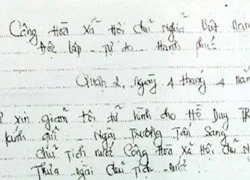 Cộng Hoà Xã Hội Chủ Nghĩa Việt Nam
Độc lập - Tự do - Hạnh phúc
Quận 2, ngày 4 tháng 4 năm
xin giảm tội tử hình cho Hồ Duy
Kính gửi Ngài Trương Tấn Sang
Chủ Tịch nước Cộng Hoà Xã Hội Chủ N
Thưa ngài Chủ Tịch nước